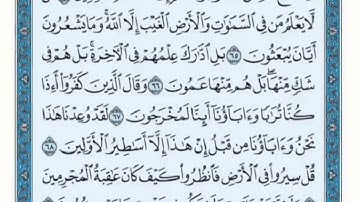 لَّا يَعْلَمُ مَن فِي السَّمَٰوَٰتِ وَالْأَرْضِ الْغَيْبَ إِلَّا اللَّهُ ۚ وَمَا يَشْعُرُونَ
أَيَّانَ يُبْعَثُونَ ٦٥ بَلِ ادَّٰرَكَ عِلْمُهُمْ فِي الْآخِرَةِ ۚ بَلْ هُمْ فِي
شَكٍّ مِّنْهَا ۖ بَلْ هُم مِّنْهَا عَمُونَ ٦٦ وَقَالَ الَّذِينَ كَفَرُوا أَءِذَا
كُنَّا تُرَٰبًا وَءَابَاؤُنَا أَئِنَّا لَمُخْرَجُونَ ٦٧ لَقَدْ وُعِدْنَا هَٰذَا
نَحْنُ وَءَابَاؤُنَا مِن قَبْلُ إِنْ هَٰذَا إِلَّا أَسَٰطِيرُ الْأَوَّلِينَ ٦٨
قُلْ سِيرُوا فِي الْأَرْضِ فَانظُرُوا كَيْفَ كَانَ عَٰقِبَةُ الْمُجْرِمِينَ